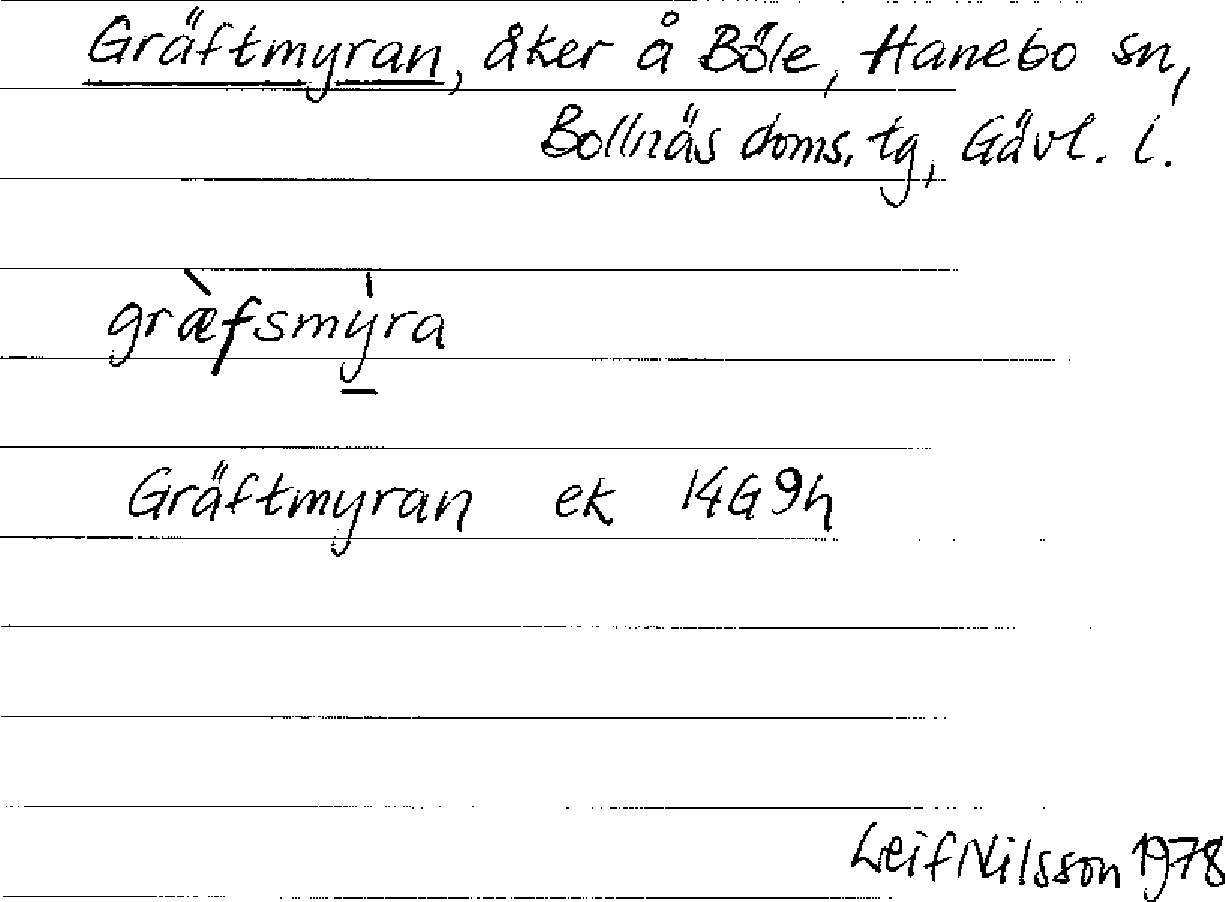 Gräftmyran, åker å Böle, Hanebo sn,
Bollnäs doms. tg, Gävl. l.
græ̀fsmý̲ra
Gräftmyran ek 14G9h
Leif Nilsson 1978